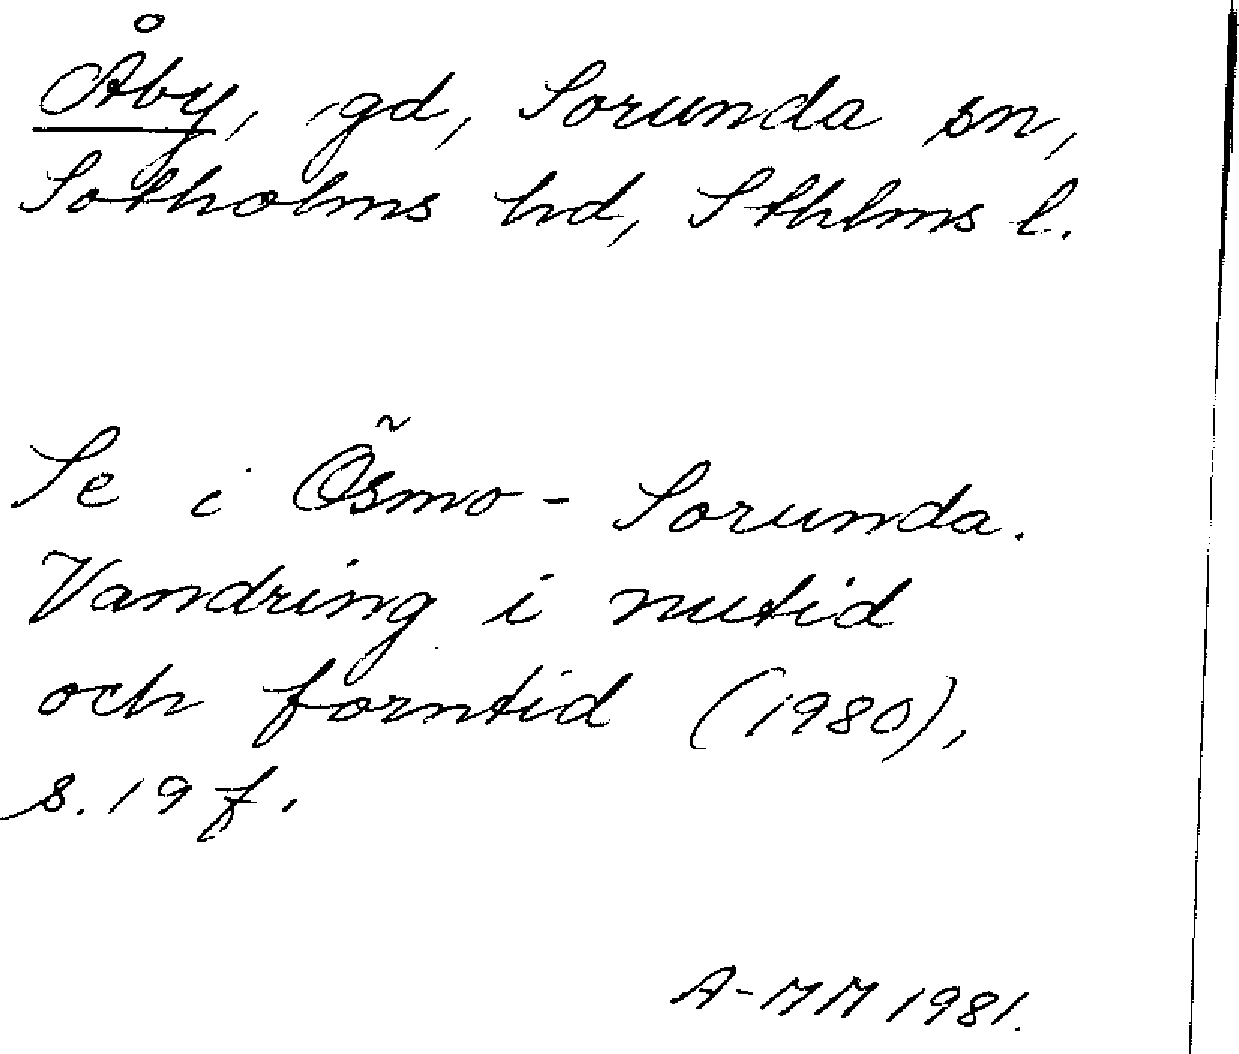 Åby, gd, Sorunda sn,
Sotholms hd, Sthlms l.
Se i Ösmo - Sorunda.
Vandring i nutid
och forntid (1980),
s. 19 f.
A-MM 1981.